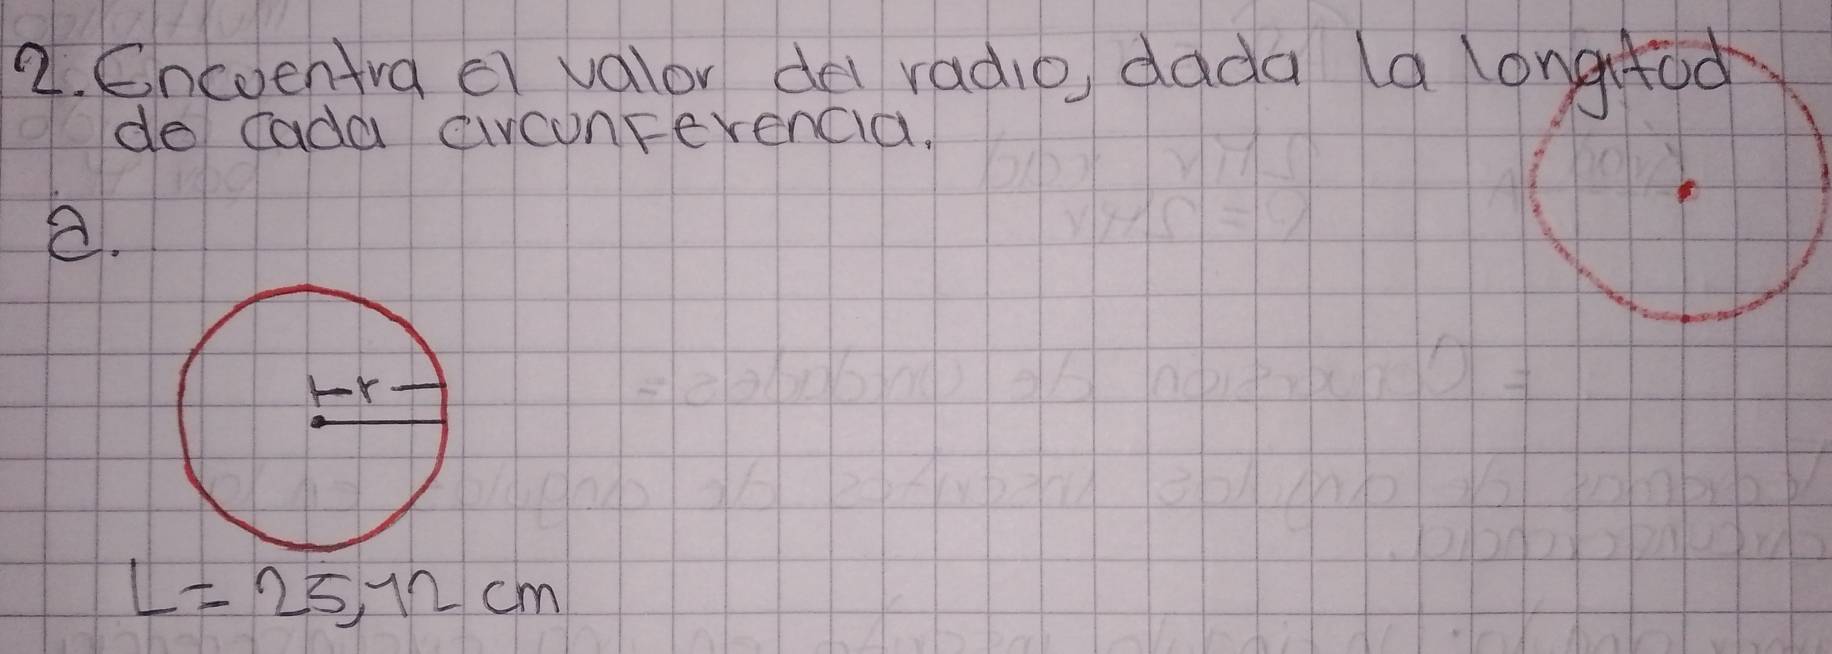 2. Encuentra el valor del radio, dada la longitud
de cada circunferencia.
a.
r
L = 25,12 cm